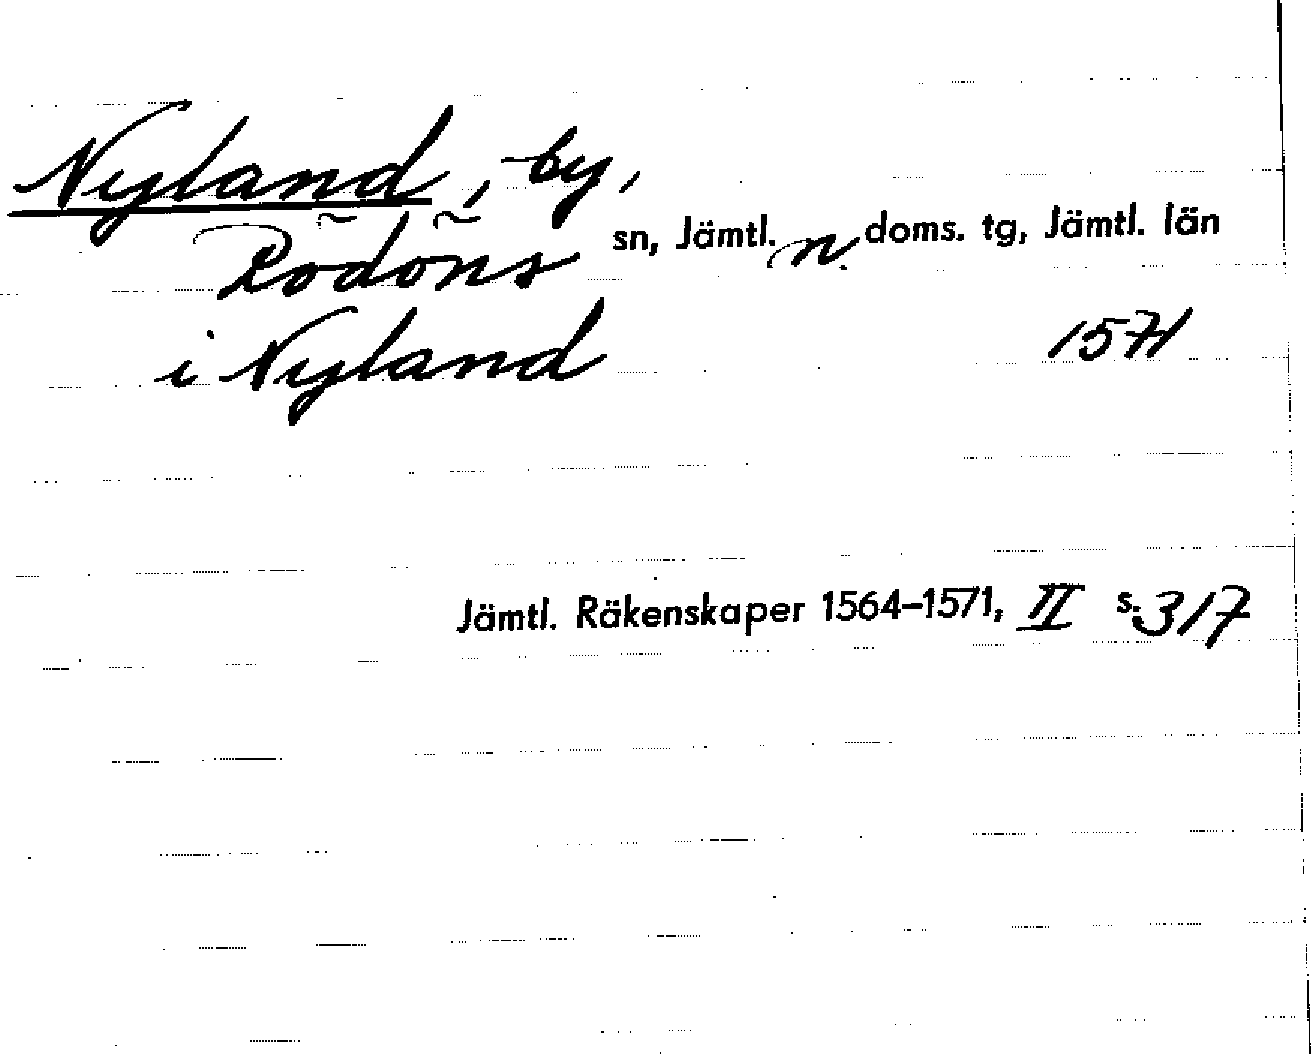 Nyland, by,
Rödöns sn, Jämtl. n. doms. tg, Jämtl. län
i Nyland 1571
Jämtl. Räkenskaper 1564–1571, II s. 317